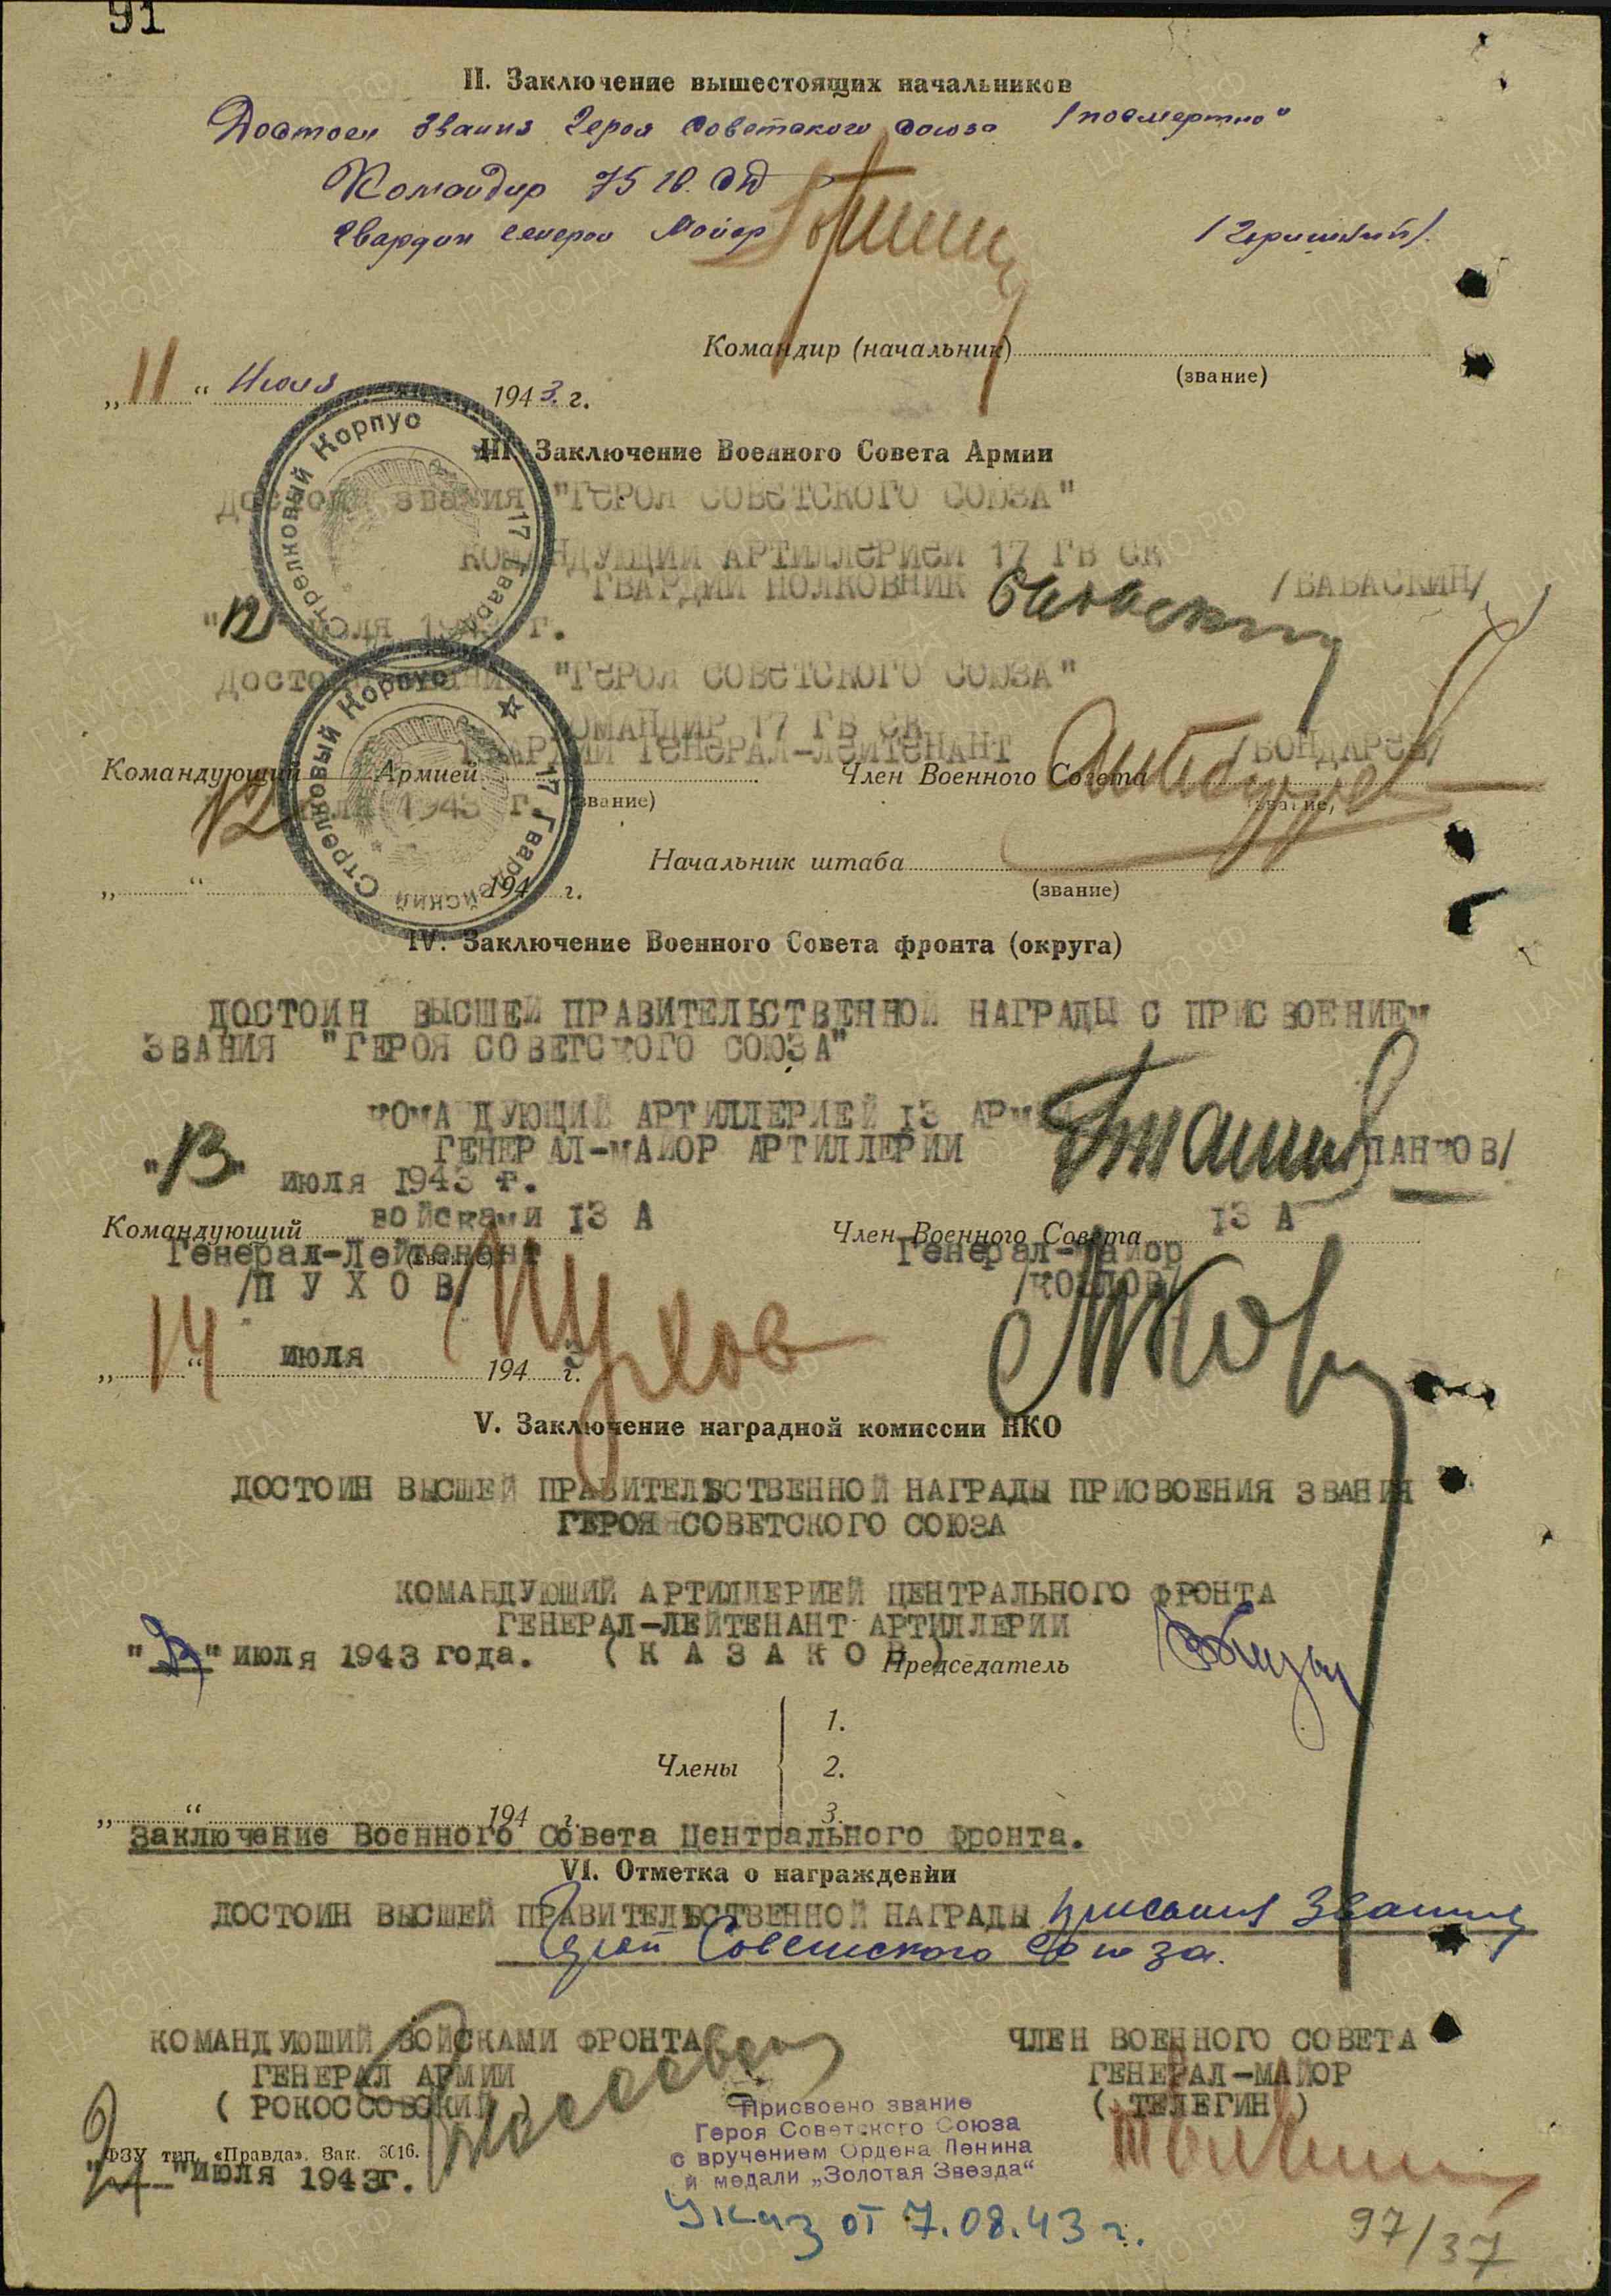 91
II. Заключение вышестоящих начальников
Достоен звания Героя Советского Союза /посмертно"
Командир 75 гв. сд
Гвардии генерал майор /Горишний/.
Командир (начальник)
(звание)
„11“ Июля 1943 г.
III. Заключение Военного Совета Армии
Достоин звания "Героя Советского Союза"
Командующий артиллерией 17 гв ск
гвардии полковник /БАБАСКИН/
"12" июля 1943 г.
Достоин звания "Героя Советского Союза"
Командир 17 гв ск
гвардии генерал-лейтенант /БОНДАРЕВ/
Командующий Армией Член Военного Совета
12 июля 1943 г. (звание) (звание)
Начальник штаба
„ “ 194 г. (звание)
Стрелковый Корпус 17 Гвардейский
Стрелковый Корпус 17 Гвардейский
IV. Заключение Военного Совета фронта (округа)
ДОСТОИН ВЫСШЕЙ ПРАВИТЕЛЬСТВЕННОЙ НАГРАДЫ С ПРИСВОЕНИЕМ
ЗВАНИЯ "ГЕРОЯ СОВЕТСКОГО СОЮЗА"
КОМАНДУЮЩИЙ АРТИЛЛЕРИЕЙ 13 АРМИИ
ГЕНЕРАЛ-МАЙОР АРТИЛЛЕРИИ
"13" июля 1943 г.
войсками 13 А 13 А
Командующий Член Военного Совета
Генерал-Лейтенант (звание) Генерал-майор
/П У Х О В/ /КОЗЛОВ/
„14“ июля 1943 г.
V. Заключение наградной комиссии НКО
ДОСТОИН ВЫСШЕЙ ПРАВИТЕЛЬСТВЕННОЙ НАГРАДЫ ПРИСВОЕНИЯ ЗВАНИЯ
ГЕРОЯ СОВЕТСКОГО СОЮЗА
КОМАНДУЮЩИЙ АРТИЛЛЕРИЕЙ ЦЕНТРАЛЬНОГО ФРОНТА
ГЕНЕРАЛ-ЛЕЙТЕНАНТ АРТИЛЛЕРИИ
" " июля 1943 года. ( К А З А К О В )
Председатель
1.
Члены 2.
3.
„ “ 194 г.
Заключение Военного Совета Центрального фронта.
VI. Отметка о награждении
ДОСТОИН ВЫСШЕЙ ПРАВИТЕЛЬСТВЕННОЙ НАГРАДЫ звания
Герой Советского Союза.
КОМАНДУЮЩИЙ ВОЙСКАМИ ФРОНТА ЧЛЕН ВОЕННОГО СОВЕТА
ГЕНЕРАЛ АРМИИ ГЕНЕРАЛ-МАЙОР
( РОКОССОВСКИЙ ) ( ТЕЛЕГИН )
ФЗУ тип. «Правда». Зак. 3016.
" " июля 1943г.
Присвоено звание
Героя Советского Союза
с вручением Ордена Ленина
и медали „Золотая Звезда“
Указ от 7.08.43 г.
97/37